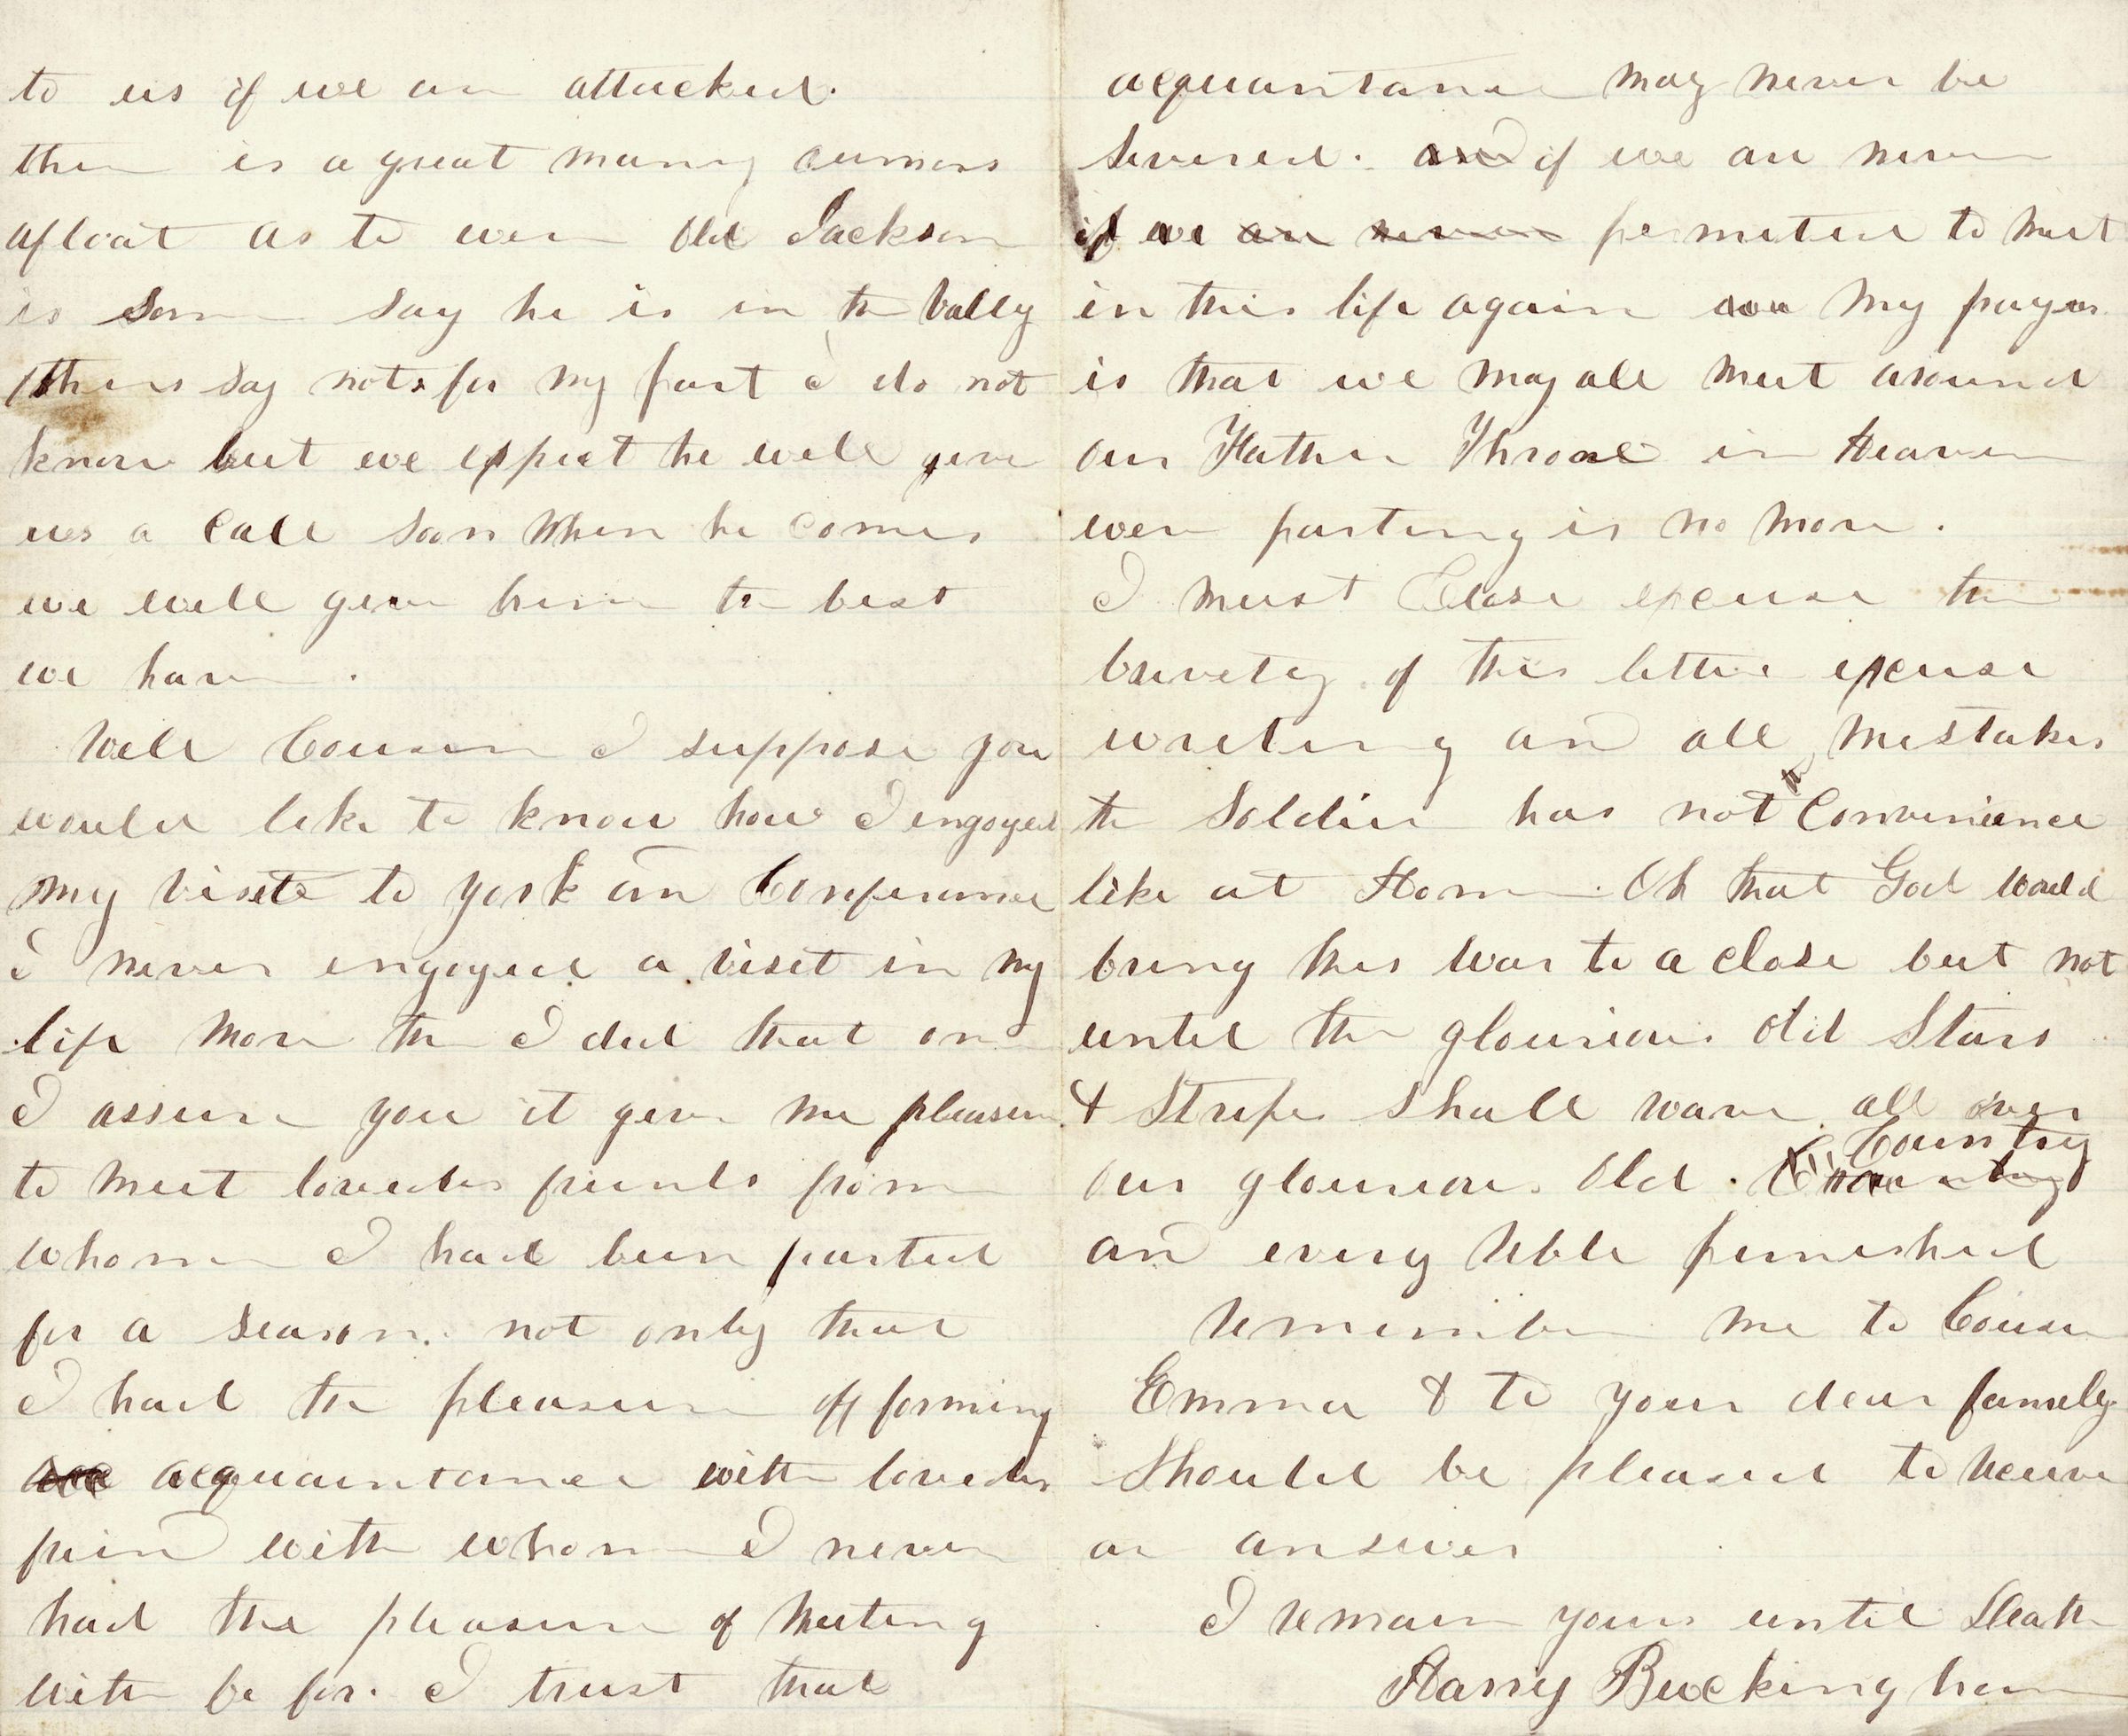 to us if we are attacked.
there is a great many rumors
afloat as to were Old Jackson
is Some say he is in the Vally
others say not. for my part I do not
know but we expect he will give
us a Call soon When he comes
we will give him the best
we have.
Well Cousin I suppose you
would like to know how I engoyed
my visite to york an Conferance
I never engoyed a visit in my
life more then I did that one
I assure you it give me pleasure
to meet loveder friends from
whome I had been parted
for a season. not only that
I had the pleasure off forming
acquaintance with loveder
frind with whome I never
had the pleasure of Meeting
with be for. I trust that
acquaintance may never be
Severed. and if we are never
if we are never permeted to meet
in this life again my prayer
is that we may all meet around
our Father Throne in Heaven
were parting is no more.
I must Close excuse the
brivety of this letter excuse
writing and all Mistakes
the Soldier has not the Convenience
like at Home. Oh that God would
bring this War to a close but not
until the glourious old Stars
& Stripes Shall wave all over
our glourious. Old. Country
and every Reble punished
Remember me to Cousin
Emma & to your dear family
Should be pleased to Receive
an answer
I remain yours until Death
Harry Buckingham